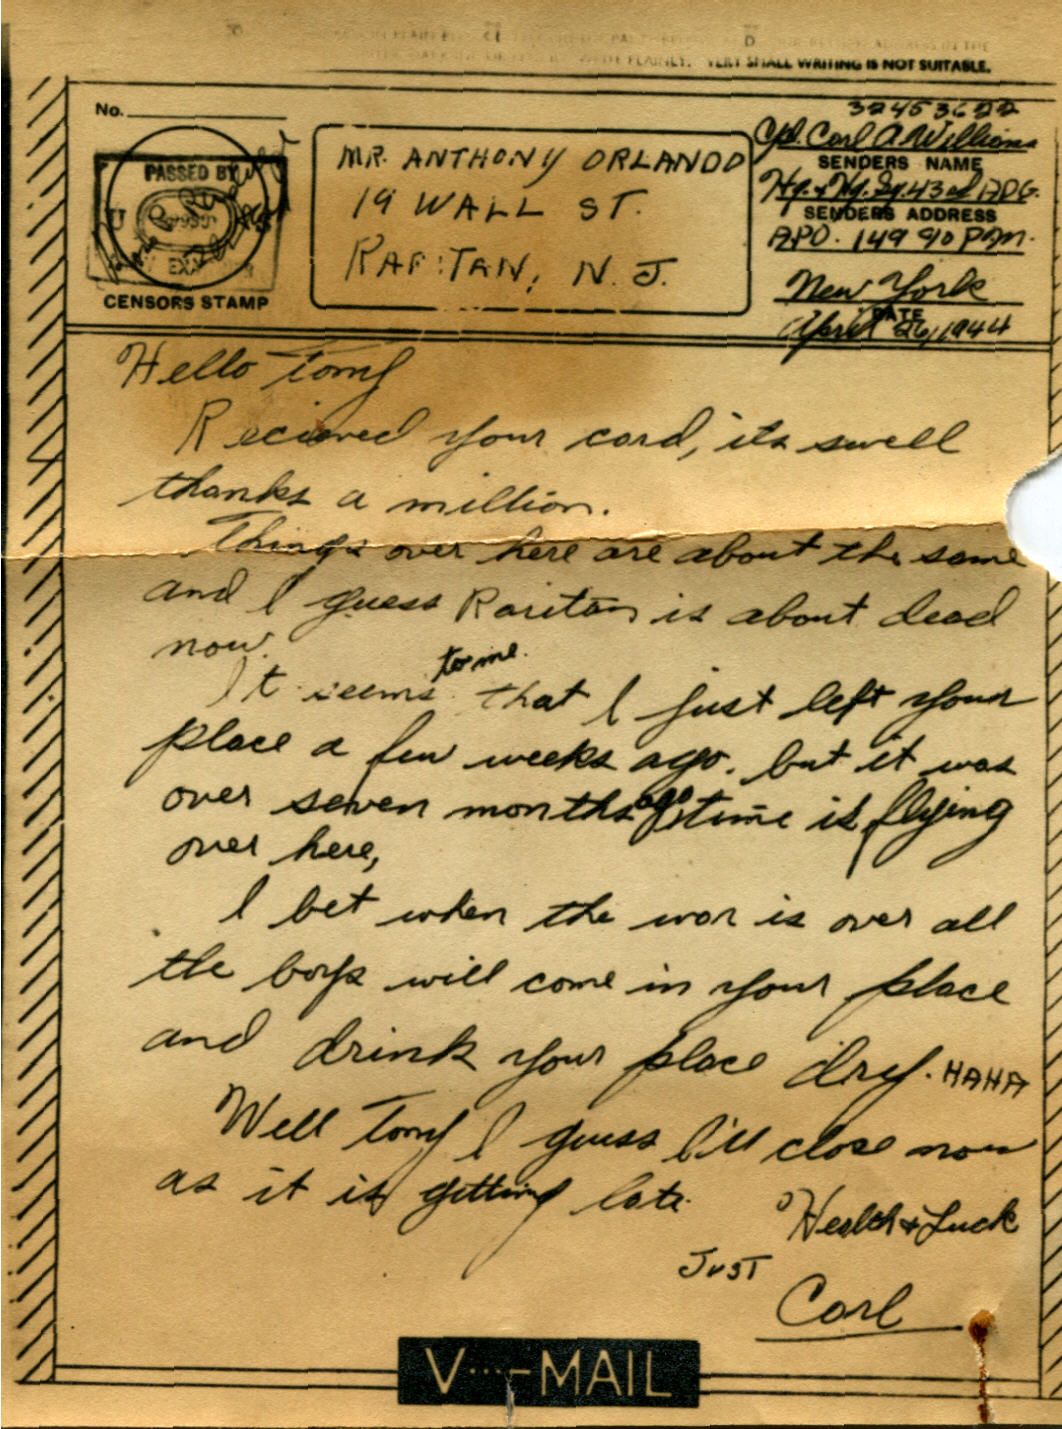 VERY SMALL WRITING IS NOT SUITABLE.
No.
PASSED BY
U S
CENSORS STAMP
MR. ANTHONY ORLANDO
19 WALL ST.
RARITAN, N. J.
32453622
Cpl. Carl A Williams
SENDERS NAME
Hq. & Hq. Sq. 43rd A.D.G.
SENDERS ADDRESS
A.P.O. 149 % P.M.
New York
DATE
April 26, 1944
Hello Tony
Recieved your card, its swell
thanks a million.
Things over here are about the same
and I guess Raritan is about dead
now.
It seems to me that I just left your
place a few weeks ago. but it was
over seven months ago time is flying
over here,
I bet when the war is over all
the boys will come in your place
and drink your place dry. HAHA
Well Tony I guess I'll close now
as it is getting late.
Health & Luck
JUST
Carl
V···—MAIL